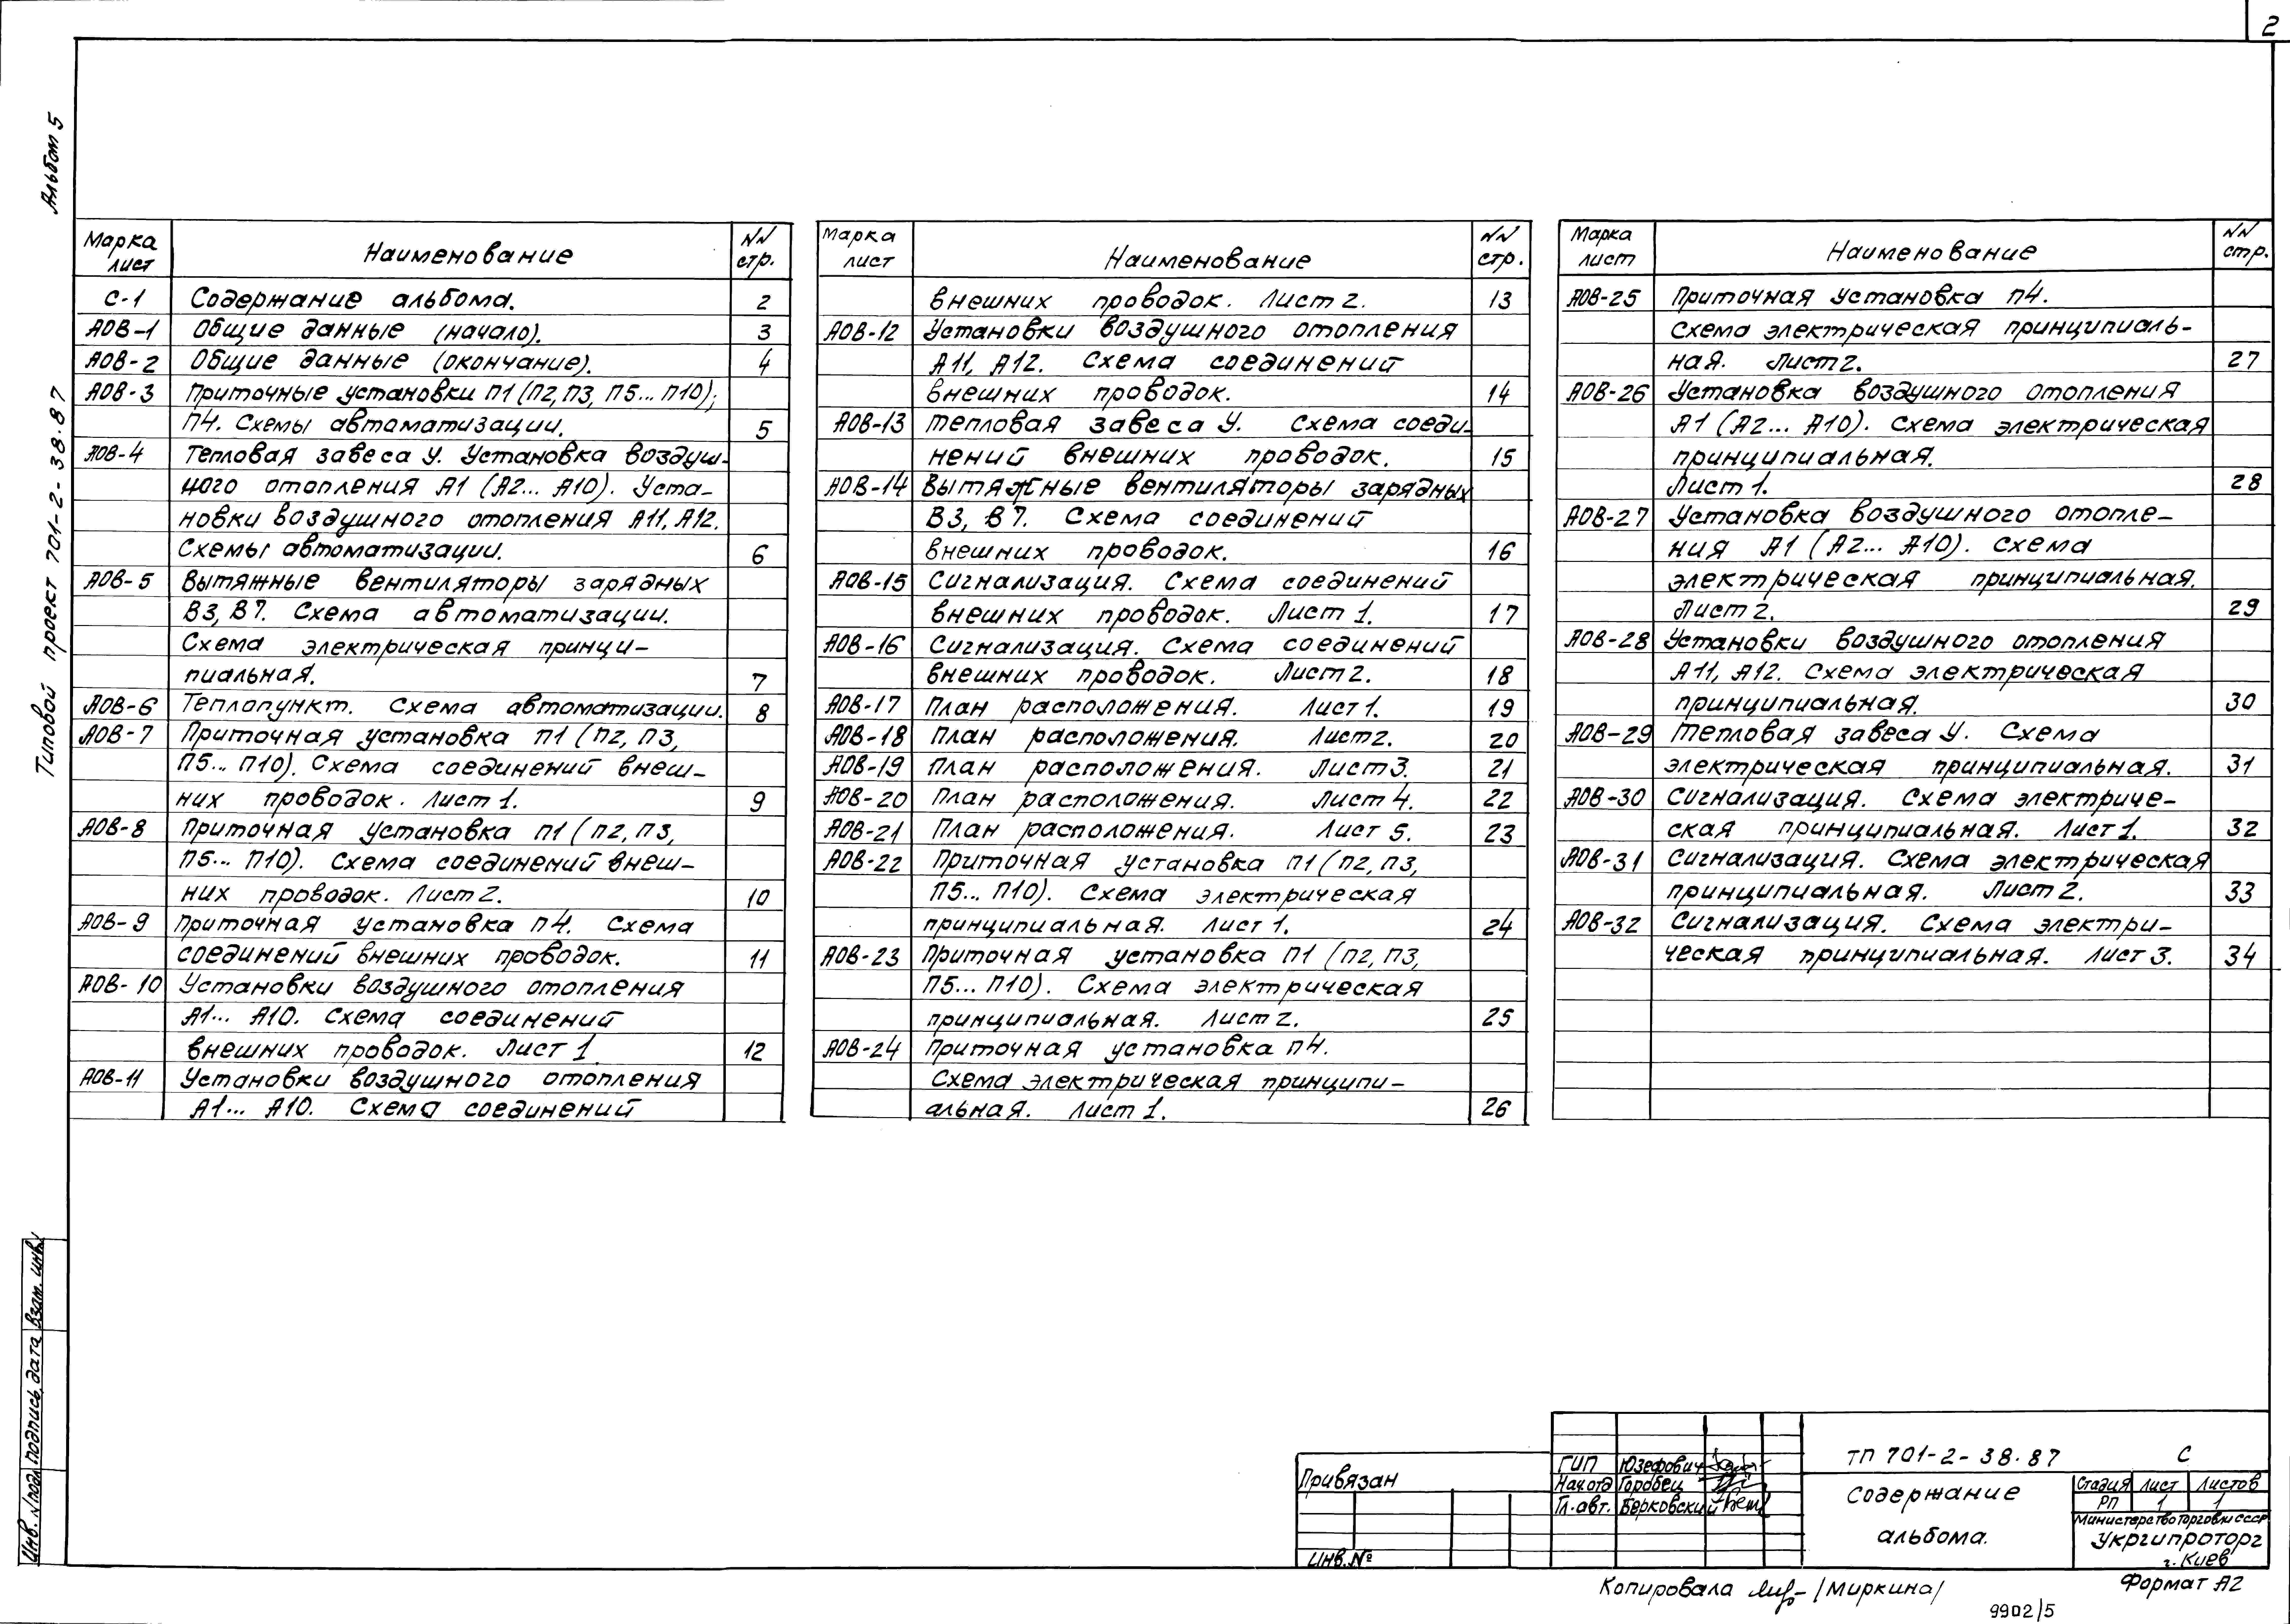 2
Альбом 5
Типовой проект 701-2-38.87
Марка лист Наименование NN стр.
С-1 Содержание альбома. 2
АОВ-1 Общие данные (начало). 3
АОВ-2 Общие данные (окончание). 4
АОВ-3 Приточные установки П1 (П2, П3, П5... П10);
П4. Схемы автоматизации. 5
АОВ-4 Тепловая завеса У. Установка воздуш-
ного отопления А1 (А2... А10). Уста-
новки воздушного отопления А11, А12.
Схемы автоматизации. 6
АОВ-5 Вытяжные вентиляторы зарядных
В3, В7. Схема автоматизации.
Схема электрическая принци-
пиальная. 7
АОВ-6 Теплопункт. Схема автоматизации. 8
АОВ-7 Приточная установка П1 (П2, П3,
П5... П10). Схема соединений внеш-
них проводок. Лист 1. 9
АОВ-8 Приточная установка П1 (П2, П3,
П5... П10). Схема соединений внеш-
них проводок. Лист 2. 10
АОВ-9 Приточная установка П4. Схема
соединений внешних проводок. 11
АОВ-10 Установки воздушного отопления
А1... А10. Схема соединений
внешних проводок. Лист 1. 12
АОВ-11 Установки воздушного отопления
А1... А10. Схема соединений
Марка лист Наименование NN стр.
внешних проводок. Лист 2. 13
АОВ-12 Установки воздушного отопления
А11, А12. Схема соединений
внешних проводок. 14
АОВ-13 Тепловая завеса У. Схема соеди-
нений внешних проводок. 15
АОВ-14 Вытяжные вентиляторы зарядных
В3, В7. Схема соединений
внешних проводок. 16
АОВ-15 Сигнализация. Схема соединений
внешних проводок. Лист 1. 17
АОВ-16 Сигнализация. Схема соединений
внешних проводок. Лист 2. 18
АОВ-17 План расположения. Лист 1. 19
АОВ-18 План расположения. Лист 2. 20
АОВ-19 План расположения. Лист 3. 21
АОВ-20 План расположения. Лист 4. 22
АОВ-21 План расположения. Лист 5. 23
АОВ-22 Приточная установка П1 (П2, П3,
П5... П10). Схема электрическая
принципиальная. Лист 1. 24
АОВ-23 Приточная установка П1 (П2, П3,
П5... П10). Схема электрическая
принципиальная. Лист 2. 25
АОВ-24 Приточная установка П4.
Схема электрическая принципи-
альная. Лист 1. 26
Марка лист Наименование NN стр.
АОВ-25 Приточная установка П4.
Схема электрическая принципиаль-
ная. Лист 2. 27
АОВ-26 Установка воздушного отопления
А1 (А2... А10). Схема электрическая
принципиальная.
Лист 1. 28
АОВ-27 Установка воздушного отопле-
ния А1 (А2... А10). Схема
электрическая принципиальная.
Лист 2. 29
АОВ-28 Установки воздушного отопления
А11, А12. Схема электрическая
принципиальная. 30
АОВ-29 Тепловая завеса У. Схема
электрическая принципиальная. 31
АОВ-30 Сигнализация. Схема электриче-
ская принципиальная. Лист 1. 32
АОВ-31 Сигнализация. Схема электрическая
принципиальная. Лист 2. 33
АОВ-32 Сигнализация. Схема электри-
ческая принципиальная. Лист 3. 34
Инв. N подл Подпись, дата Взам. инв.
Привязан
Инв. №
ГИП Юзефович
Нач.отд Горобец
Гл.авт. Берковский
ТП 701-2-38.87 С
Содержание
альбома.
Стадия Лист Листов
РП 1 1
Министерство торговли СССР
Укргипроторг
г. Киев
Копировала /Миркина/ Формат А2
9902/5